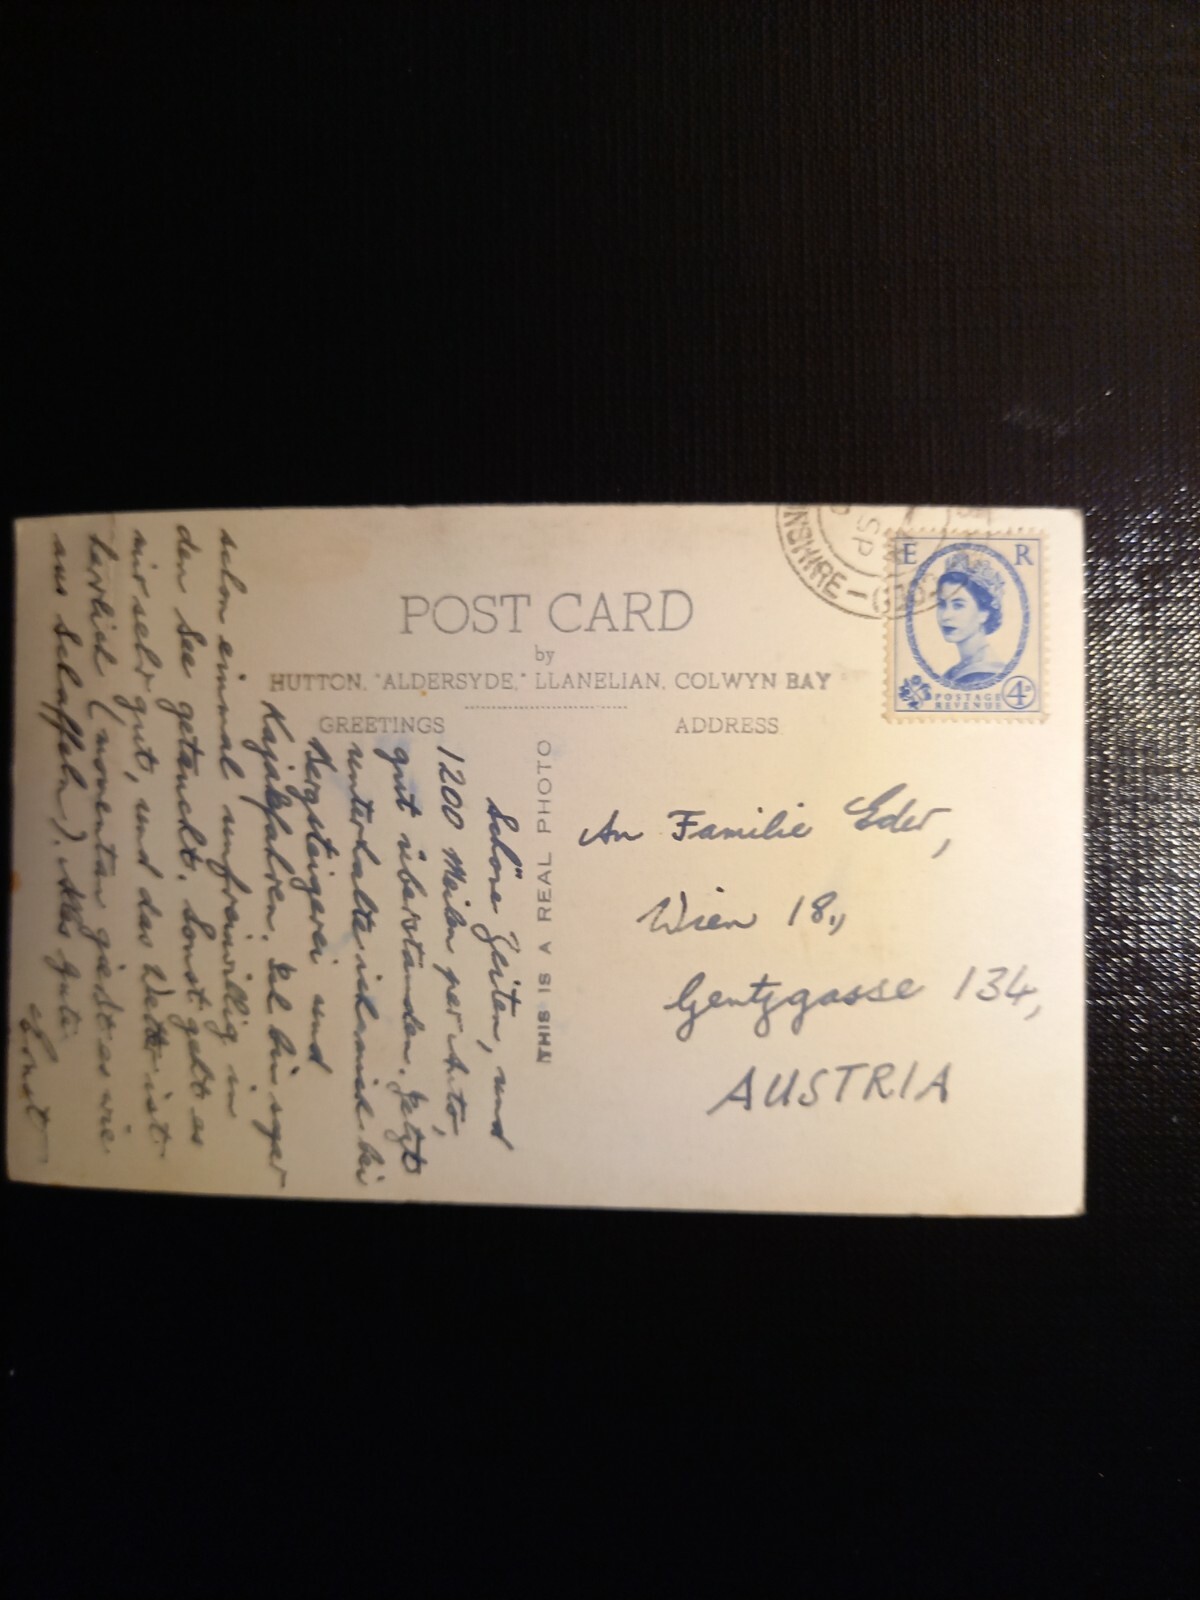 POST CARD
by
HUTTON, "ALDERSYDE," LLANELIAN, COLWYN BAY
GREETINGS
ADDRESS
THIS IS A REAL PHOTO
Schöne Zeiten, und
1200 Meilen per Auto,
gut überstanden. Jetzt
unterhalte ich mich bei
Bergsteigerei und
Kajakfahren. Ich bin sogar
schon einmal unfreiwillig in
den See getaucht. Sonst geht es
mir sehr gut, und das Wetter ist
herrlich (momentan gießt es wie
aus Schaffeln). Alles Gute
Ernst
An Familie Eder,
Wien 18.,
Gentzgasse 134,
AUSTRIA
E R
POSTAGE
REVENUE
4D
NSHIRE
SP